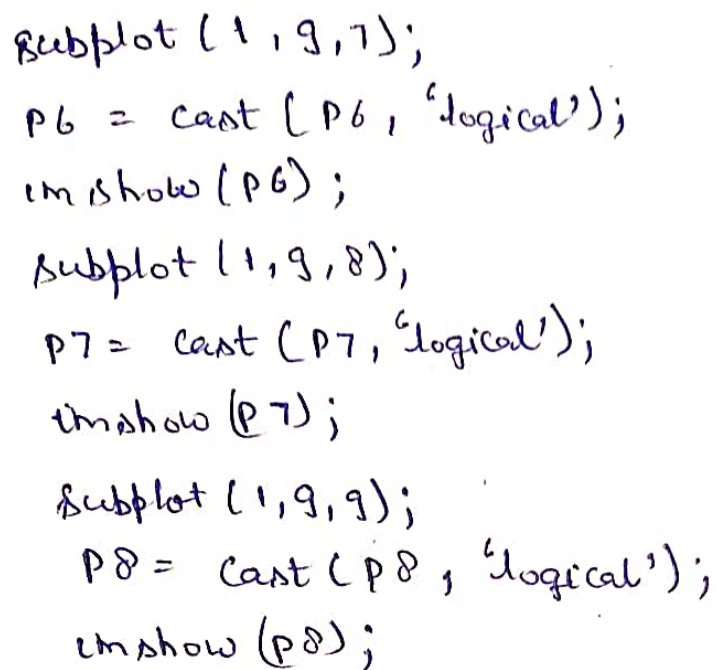 subplot (1,9,7);
p6 = cast (p6, 'logical');
imshow (p6);
subplot (1,9,8);
p7 = cast (p7, 'logical');
imshow (p7);
subplot (1,9,9);
p8 = cast (p8, 'logical');
imshow (p8);